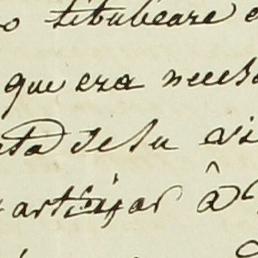 o titubeare
que era necesa
ta de su asi
articipar â